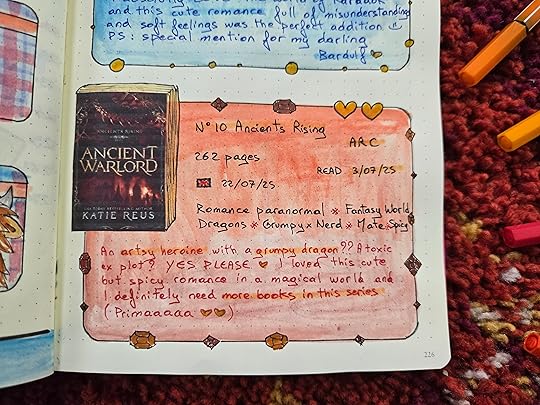 and this cute romance full of misunderstandings
and soft feelings was the perfect addition
PS : special mention for my darling
Bardulf
ANCIENTS RISING
ANCIENT
WARLORD
KATIE REUS
N°10 Ancients Rising
ARC
262 pages
READ 3/07/25
22/07/25
Romance paranormal * Fantasy World
Dragons * Grumpy x Nerd * Mate Spicy
An artsy heroine with a grumpy dragon?? A toxic
ex plot? YES PLEASE ♥ I loved this cute
but spicy romance in a magical world and
I definitely need more books in this series
(Primaaaaa ♥♥)
226